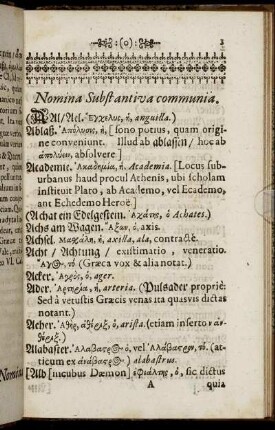 :(o):
3
Nomina Substantiva communia.
AAl/Ael. Ἔγχελυς, ἡ, anguilla.)
Ablaß. Ἀπόλυσις, ἡ, [sono potius, quam origi-
ne conveniunt. Illud ab ablassen / hoc ab
ἀπολύειν, absolvere]
Academie. Ἀκαδημία, ἡ, Academia. [Locus sub-
urbanus haud procul Athenis, ubi scholam
instituit Plato, ab Academo, vel Ecademo,
ant Echedemo Heroë.]
(Achat ein Edelgestein. Ἀχάτης, ὁ Achates.)
Achs am Wagen. Ἄξων, ὁ, axis.
Achsel. Μασχάλη, ἡ, axilla, ala, contractè.
Acht / Achtung / existimatio, veneratio.
(Græca vox & alia notat.)
Acker. Ἀγρὸς, ὁ, ager.
Ader. Ἀρτηρία, ἡ, arteria. (Pulsader propriè:
Sed à vetustis Græcis venas ita quasvis dictas
notant.)
Acher. Ἀθὴρ, ὁ, arista. (etiam inserto ρ
Alabaster. Ἀλάβαστρος ὁ, vel Ἀλάβαστρον, τὸ. (at-
ticum ex alabastrus.
[Alb [incubus Dæmon] ἐφιάλτης, ὁ, sic dictus
A
quia
Nomina